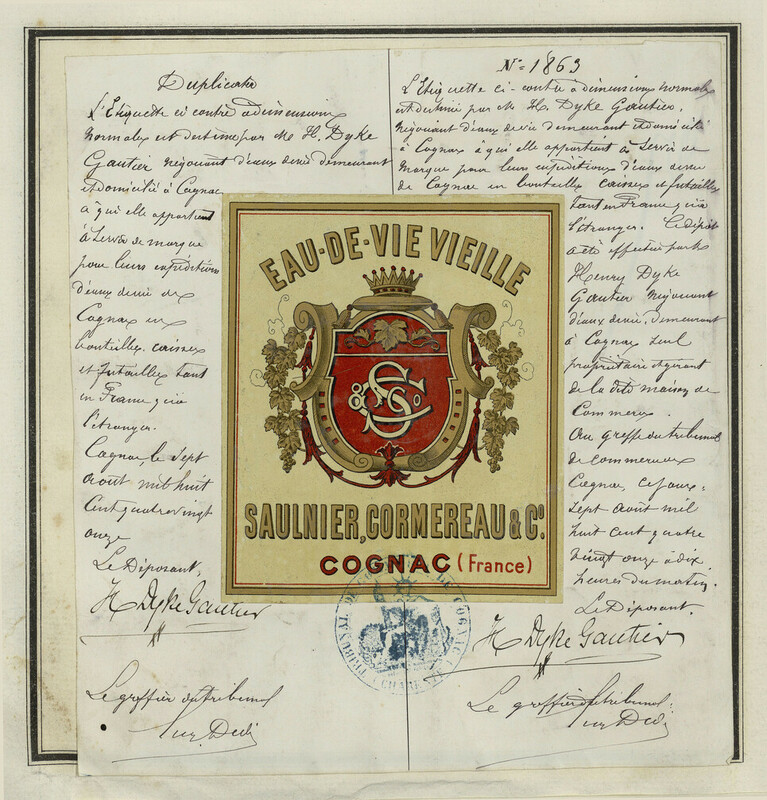 Duplicata
L'Etiquette ci contre à dimensions
normales est destinée par Mr H. Dyke
Gautier négociant d'eaux de vie demeurant
et domicilié à Cognac
à qui elle appartient
à servir de marque
pour leurs expéditions
d'eaux de vie de
Cognac en
bouteilles, caisses
et futailles tant
en France qu'à
l'étranger.
Cognac, le sept
août mil huit
cent quatre vingt
onze
Le Déposant,
H Dyke Gautier
Le greffier du tribunal
N° 1863
L'Etiquette ci-contre à dimensions normales
est destinée par Mr H. Dyke Gautier,
négociant d'eaux de vie demeurant et domicilié
à Cognac à qui elle appartient à servir de
marque pour leurs expéditions d'eaux de vie
de Cognac en bouteilles caisses et futailles
tant en France qu'à
l'étranger. Le dépôt
a été effectué par Mr
Henry Dyke
Gautier négociant
d'eaux de vie, demeurant
à Cognac seul
propriétaire et gérant
de la dite maison de
Commerce.
Au greffe du tribunal
de commerce de
Cognac, ce jour:
sept août mil
huit cent quatre
vingt onze à dix
heures du matin.
Le Déposant.
H Dyke Gautier
Le greffier du tribunal:
EAU-DE-VIE VIEILLE
SC & Co
SAULNIER, CORMEREAU & Co.
COGNAC (France)
TRIBUNAL DE COMMERCE DE COGNAC